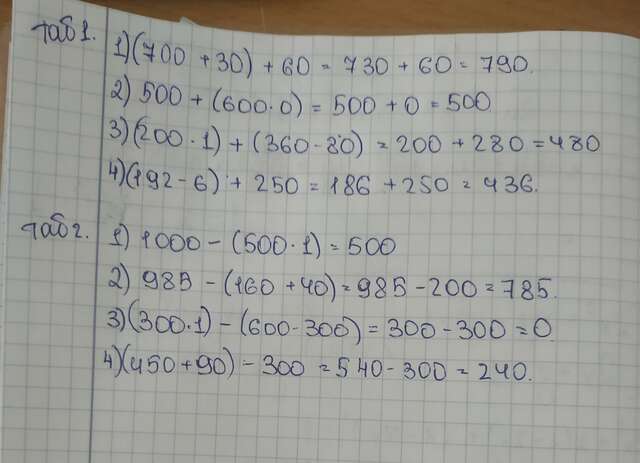 таб 1.
1) (700 + 30) + 60 = 730 + 60 = 790.
2) 500 + (600 · 0) = 500 + 0 = 500
3) (200 · 1) + (360 - 80) = 200 + 280 = 480
4) (192 - 6) + 250 = 186 + 250 = 436.
таб 2.
1) 1000 - (500 · 1) = 500
2) 985 - (160 + 40) = 985 - 200 = 785.
3) (300 · 1) - (600 - 300) = 300 - 300 = 0.
4) (450 + 90) - 300 = 540 - 300 = 240.